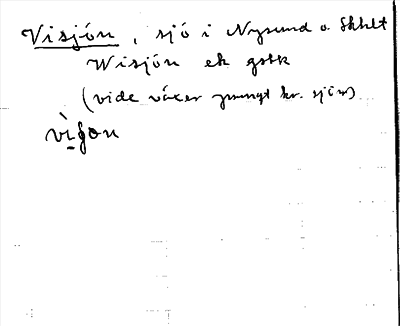 Visjön, sjö i Nysund o. Skhlt
Wisjön ek gstk
(vide växer ymnigt kr. sjön)
vìʃon